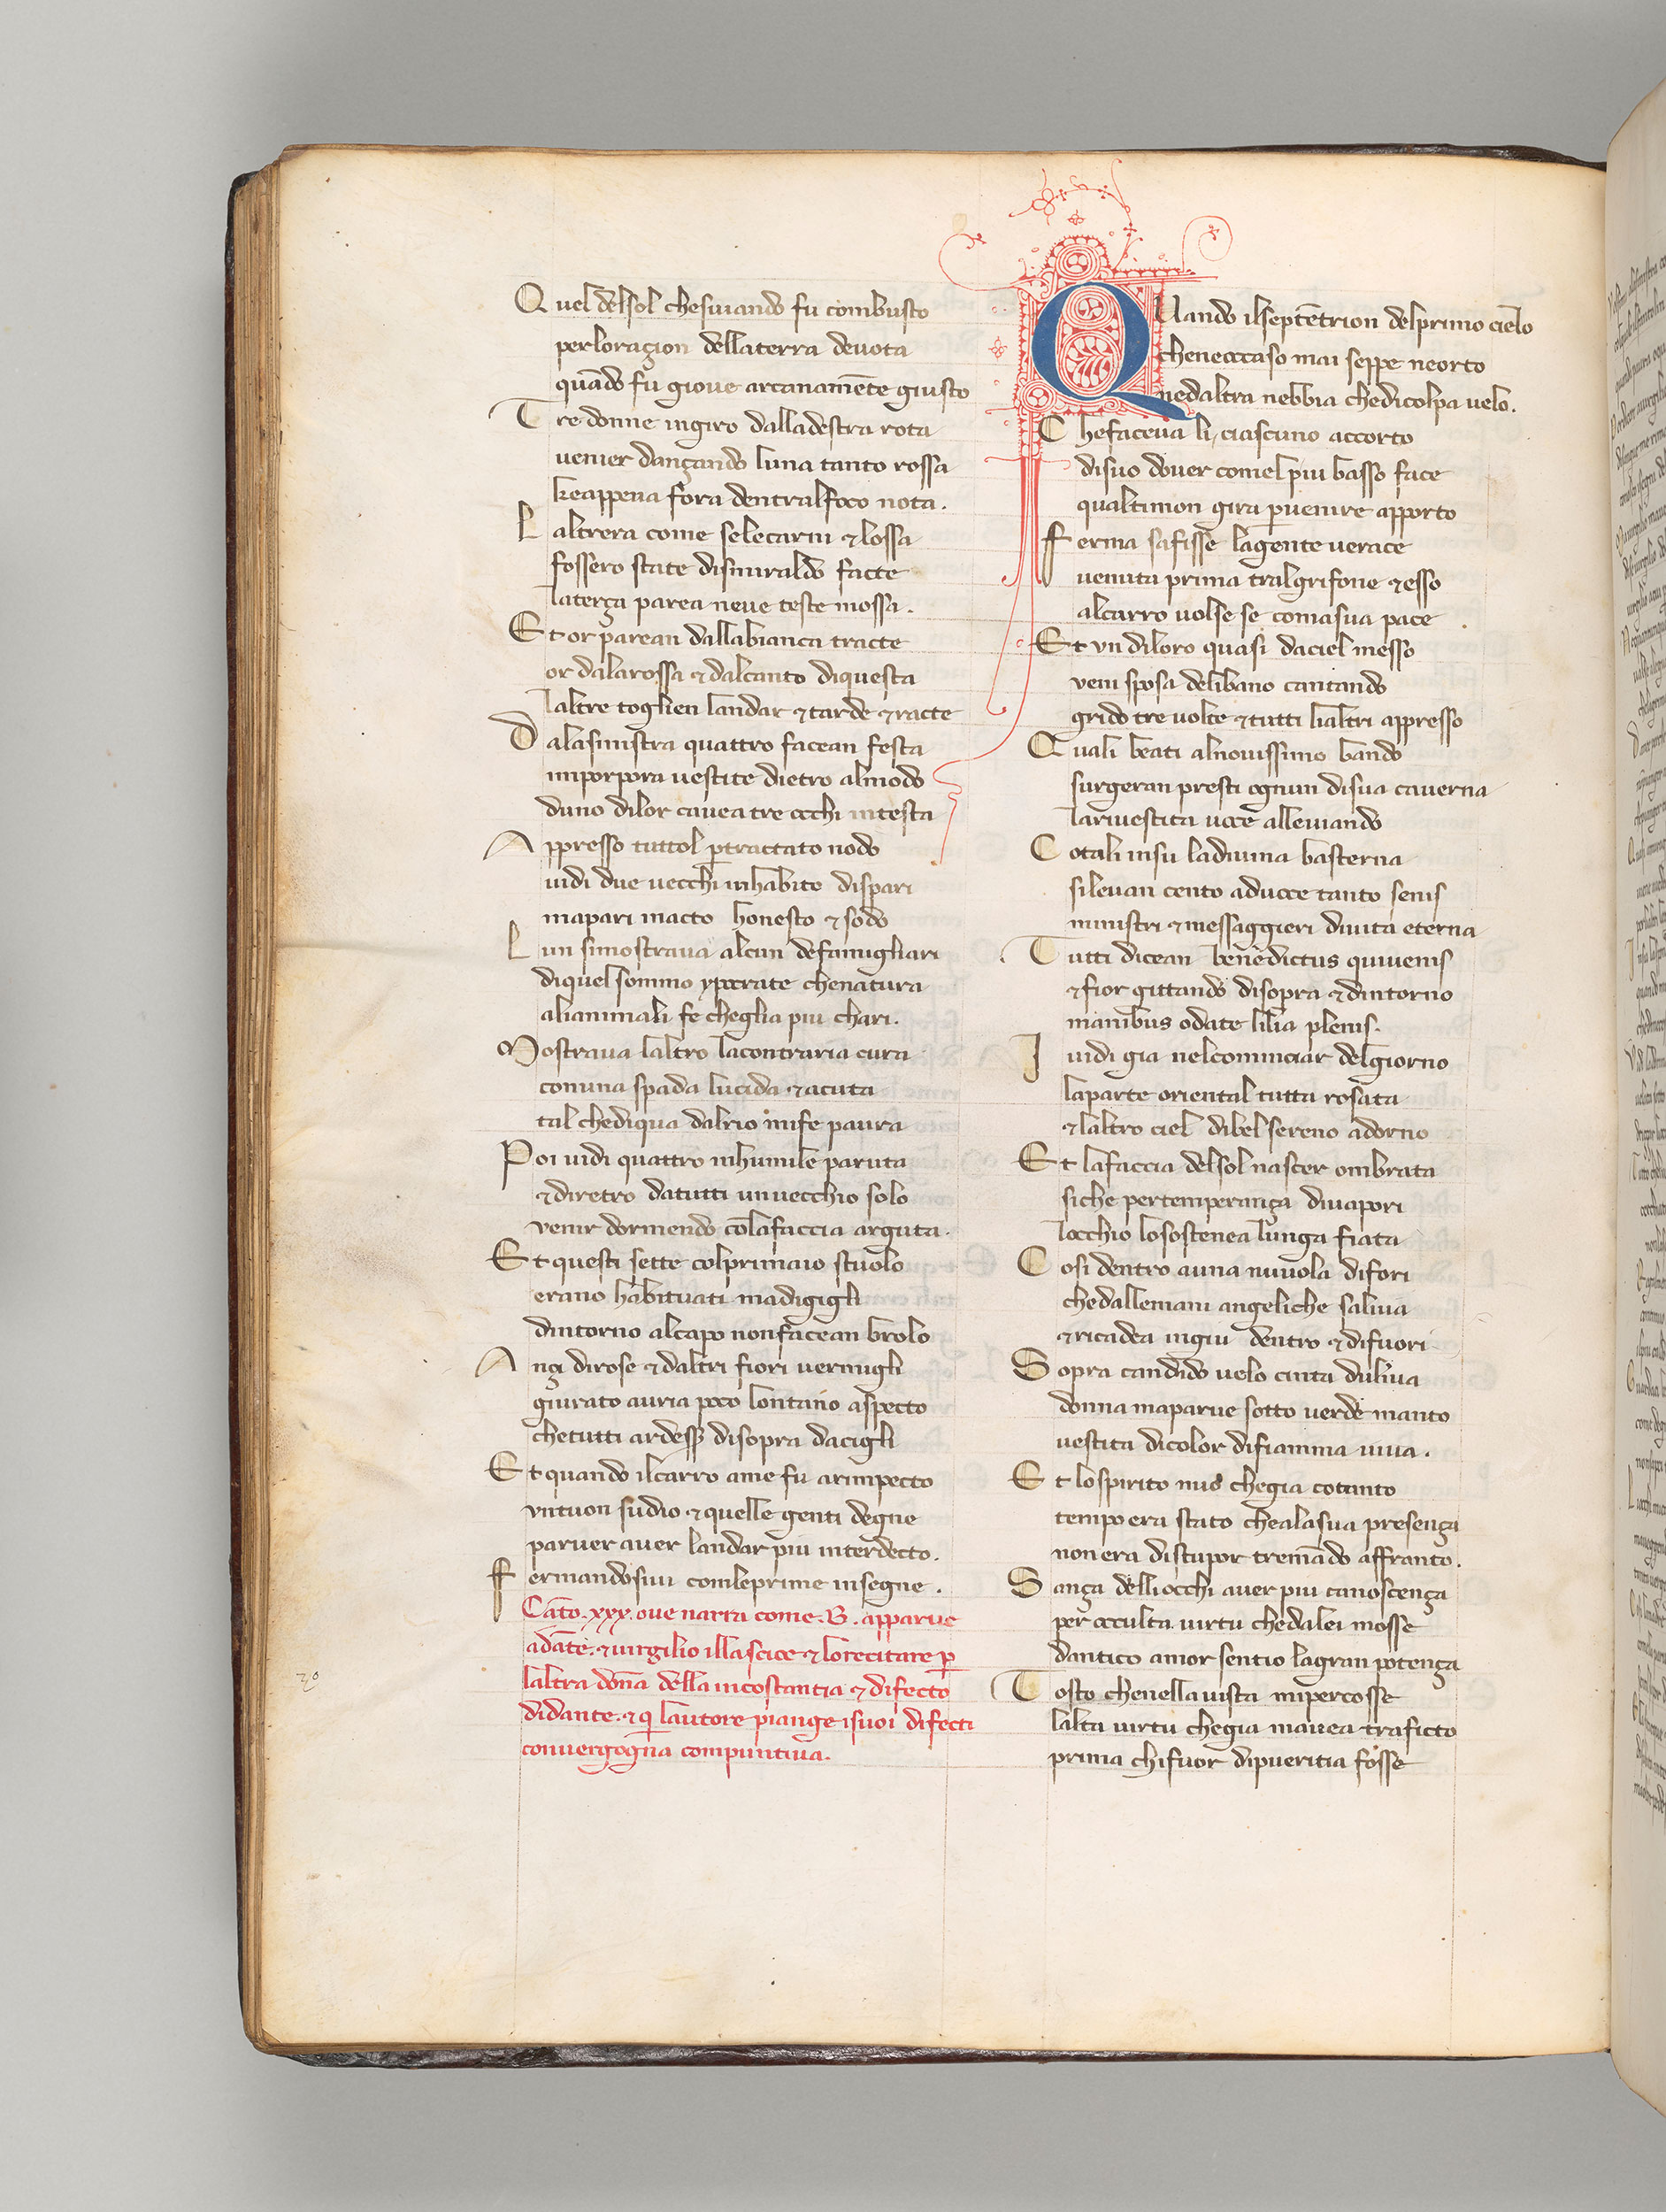 Quel delsol chesuiando fu combusto
perloragion dellaterra deuota
quādo fu gioue arcanamēte giusto
Tre donne ingiro dalladestra rota
uenier dançando luna tanto rossa
keappena fora dentralfoco nota.
Laltrera come selecarni ⁊ lossa
fossero state dismiraldo facte
laterça parea neue teste mossa.
Et or parean dallabianca tracte
or dalarossa ⁊ dalcanto diquesta
laltre toglien landar ⁊ tarde ⁊ racte
Dalasinistra quattro facean festa
imporpora uestite dietro almodo
duno dilor cauea tre occhi intesta
Appresso tuttol ꝑtrattato nodo
uidi due uecchi inhabito dispari
mapari inacto honesto ⁊ sodo
Lun simostraua alcun defamigliari
diquel sommo ypocrate chenatura
alianimali fe cheglia piu chari.
Mostraua laltro lacontraria cura
conuna spada lucida ⁊ acuta
tal chediqua dalrio mife paura
Poi uidi quattro inhumile paruta
⁊ diretro datutti unuecchio solo
venir dormendo cōlafaccia arguta.
Et questi sette colprimaio stuolo
erano habituati madigigli
dintorno alcapo nonfacean brolo
Ançi dirose ⁊ daltri fiori uermigli
giurato auria poco lontano aspecto
chetutti ardesser disopra dacigli
Et quando ilcarro ame fu arimpecto
vntuon sudio ⁊ quelle genti degne
paruer auer landar piu interdecto.
ffermandosiui comleprime insegne.
Cāto. xxx. oue narra come. B. apparue
adāte. ⁊ uirgilio illascioe ⁊ lorecitare ꝑ
laltra dōna della incostantia ⁊ difecto
didante. ⁊ q̄ lautore piange isuoi difecti
conuergogna compuntiua.
30
QUando ilseptētrion delprimo cielo
cheneoccaso mai seppe neorto
nedaltra nebbia chedicolpa uelo.
Chefaceua li, ciascuno accorto
disuo douer comel piu basso face
qualtimon gira ꝑuenire apporto
fferma safisse lagente uerace
uenuta prima tralgrifone ⁊ esso
alcarro uolse se comasua pace
Et vn diloro quasi daciel messo
veni sposa delibano cantando
grido tre uolte ⁊ tutti lialtri appresso
Quali beati alnouissimo bando
surgeran presti ognun disua cauerna
lariuestita uoce alleuiando
Cotali insu ladiuina basterna
sileuan cento aduoce tanto senis
ministri ⁊ messaggieri diuita eterna
Tutti dicean benedictus quiuenis
⁊ fior gittando disopra ⁊ dintorno
manibus odate lilia plenis.
I uidi gia nelcominciar delgiorno
laparte oriental tutta rosata
⁊ laltro ciel dibel sereno adorno
Et lafaccia delsol nascer ombrata
siche pertemperança diuapori
locchio losostenea lunga fiata
Cosi dentro auna nuuola difori
chedallemani angeliche saliua
⁊ ricadea ingiu dentro ⁊ difuori
Sopra candido uelo cinta duliua
donna maparue sotto uerde manto
uestita dicolor difiamma uiua.
Et lospirito mio chegia cotanto
tempo era stato chealasua presença
nonera distupor tremādo affranto.
Sança delliocchi auer piu canoscença
per occulta uirtu chedalei mosse
dantico amor sentio lagran potença
Tosto chenellauista mipercosse
lalta uirtu chegia mauea traficto
prima chifuor dipueritia fosse